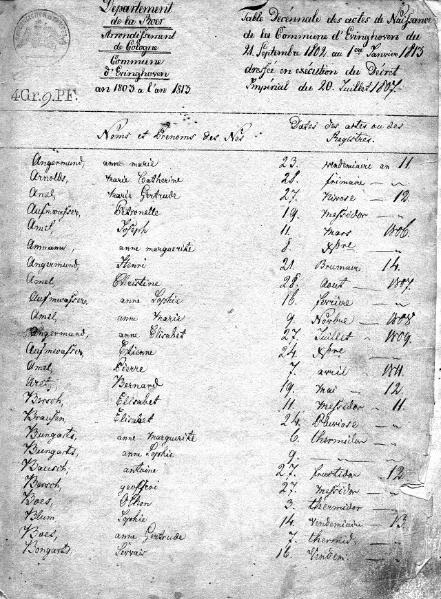 Département
de la Roer
Arrondissement
de Cologne
Commune
d'Evinghoven
an 1803 a l'an 1813
4 Gr. 9. PF.
Table Décennale des actes de Naissance
de la Commune d'Evinghoven du
21. Septembre 1802 au 1er Janvier 1813
dressée en exécution du Décret
Impérial du 20. Juillet 1807.
Noms et Prenoms des Nés
Dates des actes ou des Registres.
Angermund, anne marie 23. vendemiaire an 11
Arnolds, marie Catherine 28. frimaire — "
Amel, marie Gertrude 27. Nivose — 12.
Aufmwasser, Petronelle 19. Messidor — "
Amel, Joseph 11. Mars 1806.
Ammann, anne marguerite 8. Xbre — "
Angermund, Henri 21. Brumair 14.
Amel Christine 28. Aout — 1807.
Aufmwasser, anne Sophie 16. fevrier — "
Amel, anne marie 9. Novbre — 1808.
Angermund, anne Elisabet 27. Juillet — 1809.
Aufmwasser, Etienne 24. Xbre — "
Amel, Pierre 7. avril — 1811.
Bernard 19. Mai — 12.
Bersch, Elisabet 11. Messidor — 11.
Brausen, Elisabet 24. Pluviose — "
Bungarts, anne marguerite 6. thermidor — "
Bungarts, anne Sophie 9. — "
Bausch, antoine 27. Fructidor — 12.
Bersch, geoffroi 27. Messidor — "
Boes, 3. thermidor — "
Blum, Sophie 14. Vendemiaire — 13.
Boes, anne Gertrude 7. thermid. — "
Bongarts, Servais 16. Vendem. — "